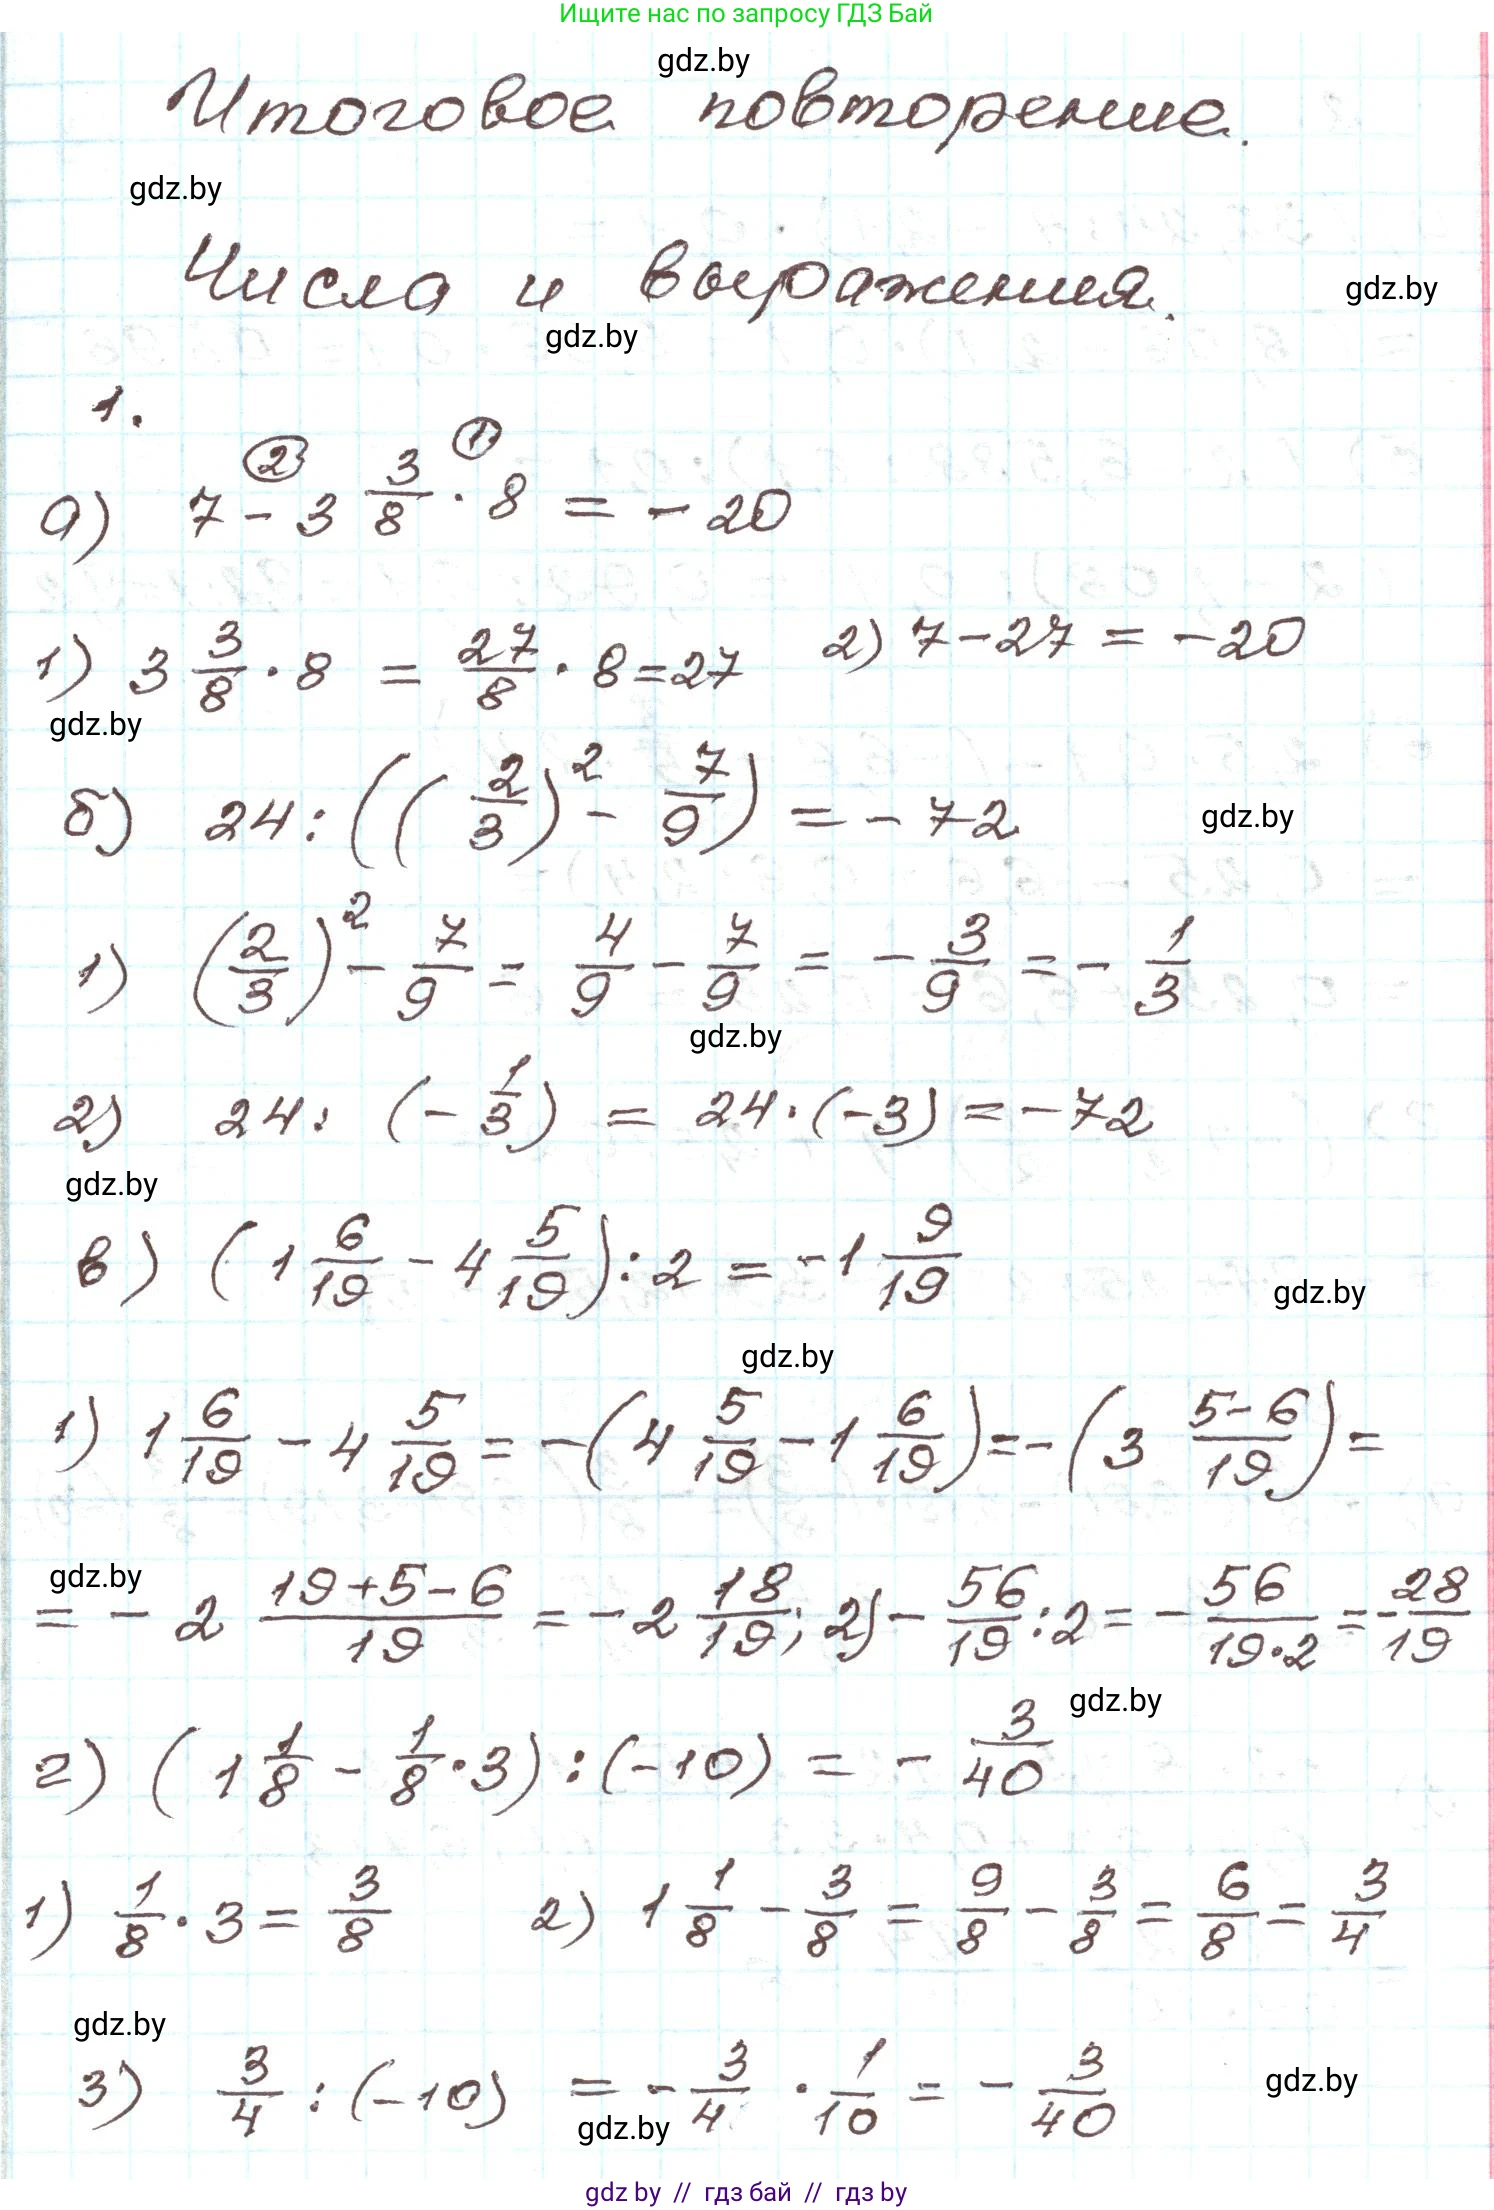 Ищите нас по запросу ГДЗ Бай
gdz.by
Итоговое повторение.
gdz.by
Числа и выражения.
gdz.by
gdz.by
1.
② ①
а) 7 - 3 3/8 · 8 = - 20
1) 3 3/8 · 8 = 27/8 · 8 = 27 2) 7 - 27 = - 20
gdz.by
б) 24 : ((2/3)² - 7/9) = - 72
gdz.by
1) (2/3)² - 7/9 = 4/9 - 7/9 = - 3/9 = - 1/3
gdz.by
2) 24 : (- 1/3) = 24 · (-3) = - 72
gdz.by
в) (1 6/19 - 4 5/19) : 2 = - 1 9/19
gdz.by
gdz.by
1) 1 6/19 - 4 5/19 = - (4 5/19 - 1 6/19) = - (3 5-6/19) =
gdz.by
= - 2 19+5-6/19 = - 2 18/19; 2) - 56/19 : 2 = - 56/19·2 = - 28/19
gdz.by
г) (1 1/8 - 1/8 · 3) : (-10) = - 3/40
1) 1/8 · 3 = 3/8 2) 1 1/8 - 3/8 = 9/8 - 3/8 = 6/8 = 3/4
gdz.by
3) 3/4 : (-10) = - 3/4 · 1/10 = - 3/40
gdz.by
gdz.by
gdz by // гдз бай // гдз by